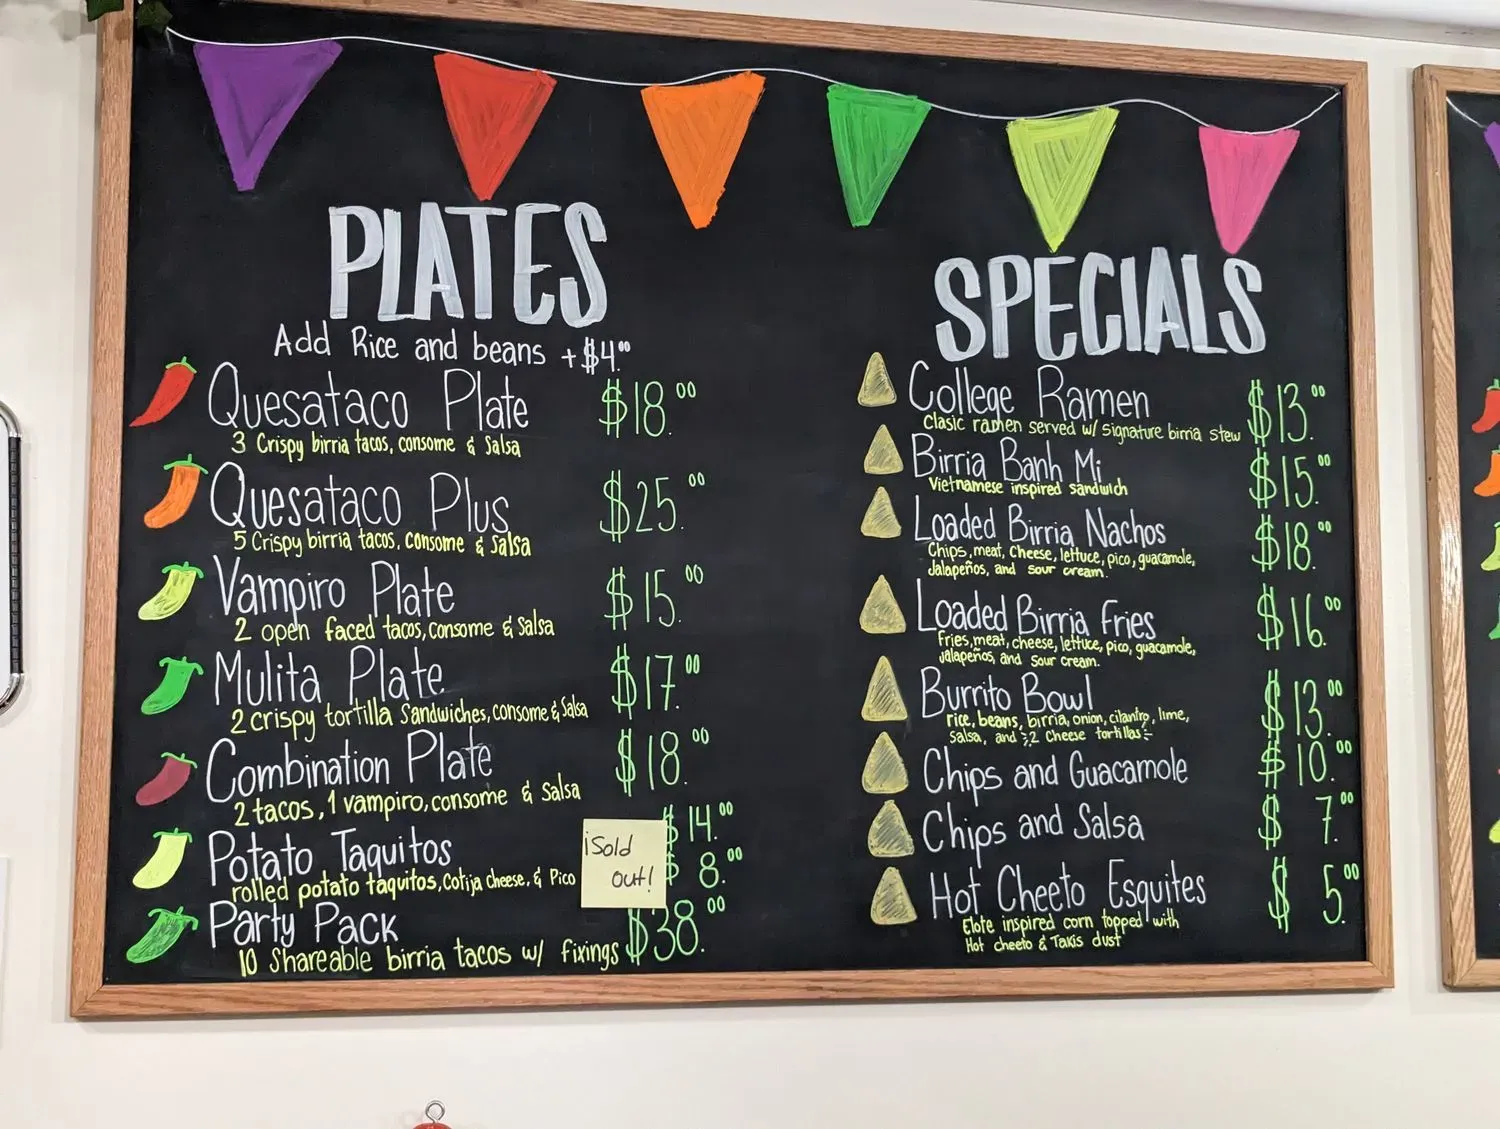 PLATES
Add Rice and beans +$4.00
Quesataco Plate $18.00
3 Crispy birria tacos, consome & Salsa
Quesataco Plus $25.00
5 Crispy birria tacos, consome & Salsa
Vampiro Plate $15.00
2 open faced tacos, consome & Salsa
Mulita Plate $17.00
2 crispy tortilla Sandwiches, consome & Salsa
Combination Plate $18.00
2 tacos, 1 vampiro, consome & Salsa
Potato Taquitos $14.00
rolled potato taquitos, Cotija cheese, & Pico $8.00
¡Sold
out!
Party Pack $38.00
10 Shareable birria tacos w/ fixings
SPECIALS
College Ramen $13.00
Clasic ramen served w/ signature birria stew
Birria Banh Mi $15.00
Vietnamese inspired sandwich
Loaded Birria Nachos $18.00
Chips, meat, cheese, lettuce, pico, guacamole,
Jalapeños, and sour cream.
Loaded Birria Fries $16.00
Fries, meat, cheese, lettuce, pico, guacamole,
Jalapeños, and sour cream.
Burrito Bowl $13.00
rice, beans, birria, onion, cilantro, lime,
Salsa, and 2 Cheese tortillas
Chips and Guacamole $10.00
Chips and Salsa $7.00
Hot Cheeto Esquites $5.00
Elote inspired corn topped with
Hot cheeto & Takis dust